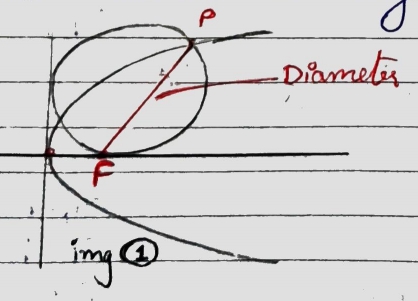 P
Diameter
F
img ①